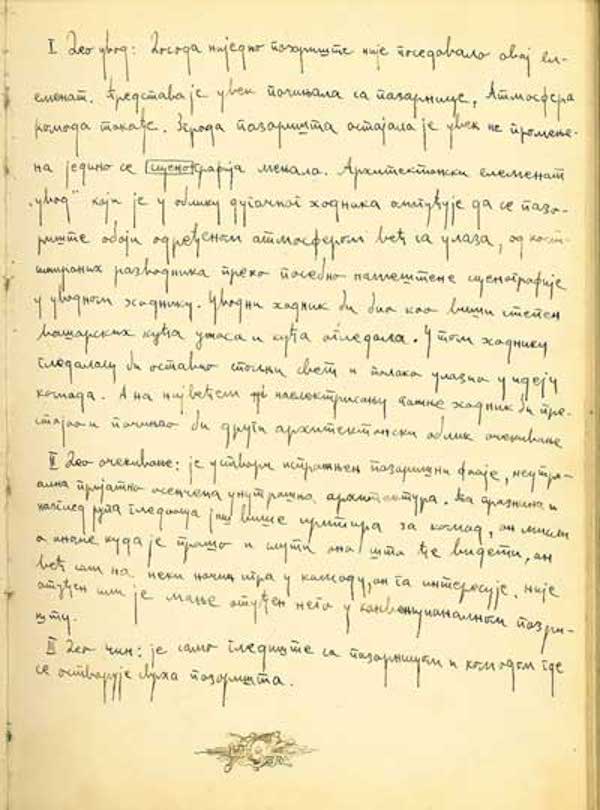 I Део увод: Досада ниједно позориште није поседовало овај ел-
еменат. Представа је увек почињала са позорнице, Атмосфера
комада такође. Зграда позоришта остајала је увек не промење-
на једино се сценографија мењала. Архитектонски елеменат
„увод" који је у облику дугачког ходника омогућује да се позо-
риште обоји одређеном атмосфером већ са улаза, од кост-
имираних разводника преко посебно намештене сценографије
у уводном ходнику. Уводни ходник би био као виши степен
вашарских кућа ужаса и кућа огледала. У том ходнику
гледалац би оставио спољни свет и полако улазио у идеју
комада. А на највећем наелектрисању пажње ходник би пре-
стајао и почињао би други архитектонски облик очекивање
II Део очекивање: је у ствари позоришни фоаје, неутр-
ална пријатно осенчена унутрашња архитектура. Та празнина и
изглед гледаоца још више за комад, он мисли
о ономе куда је прошо и слути оно шта ће видети, он
већ сам на неки начин игра у комаду, он га интересује, није
отуђен или је мање отуђен него у конвенционалном позри-
шту.
III Део чин: је само гледиште са позорницом и комадом где
се остварује сврха позоришта.